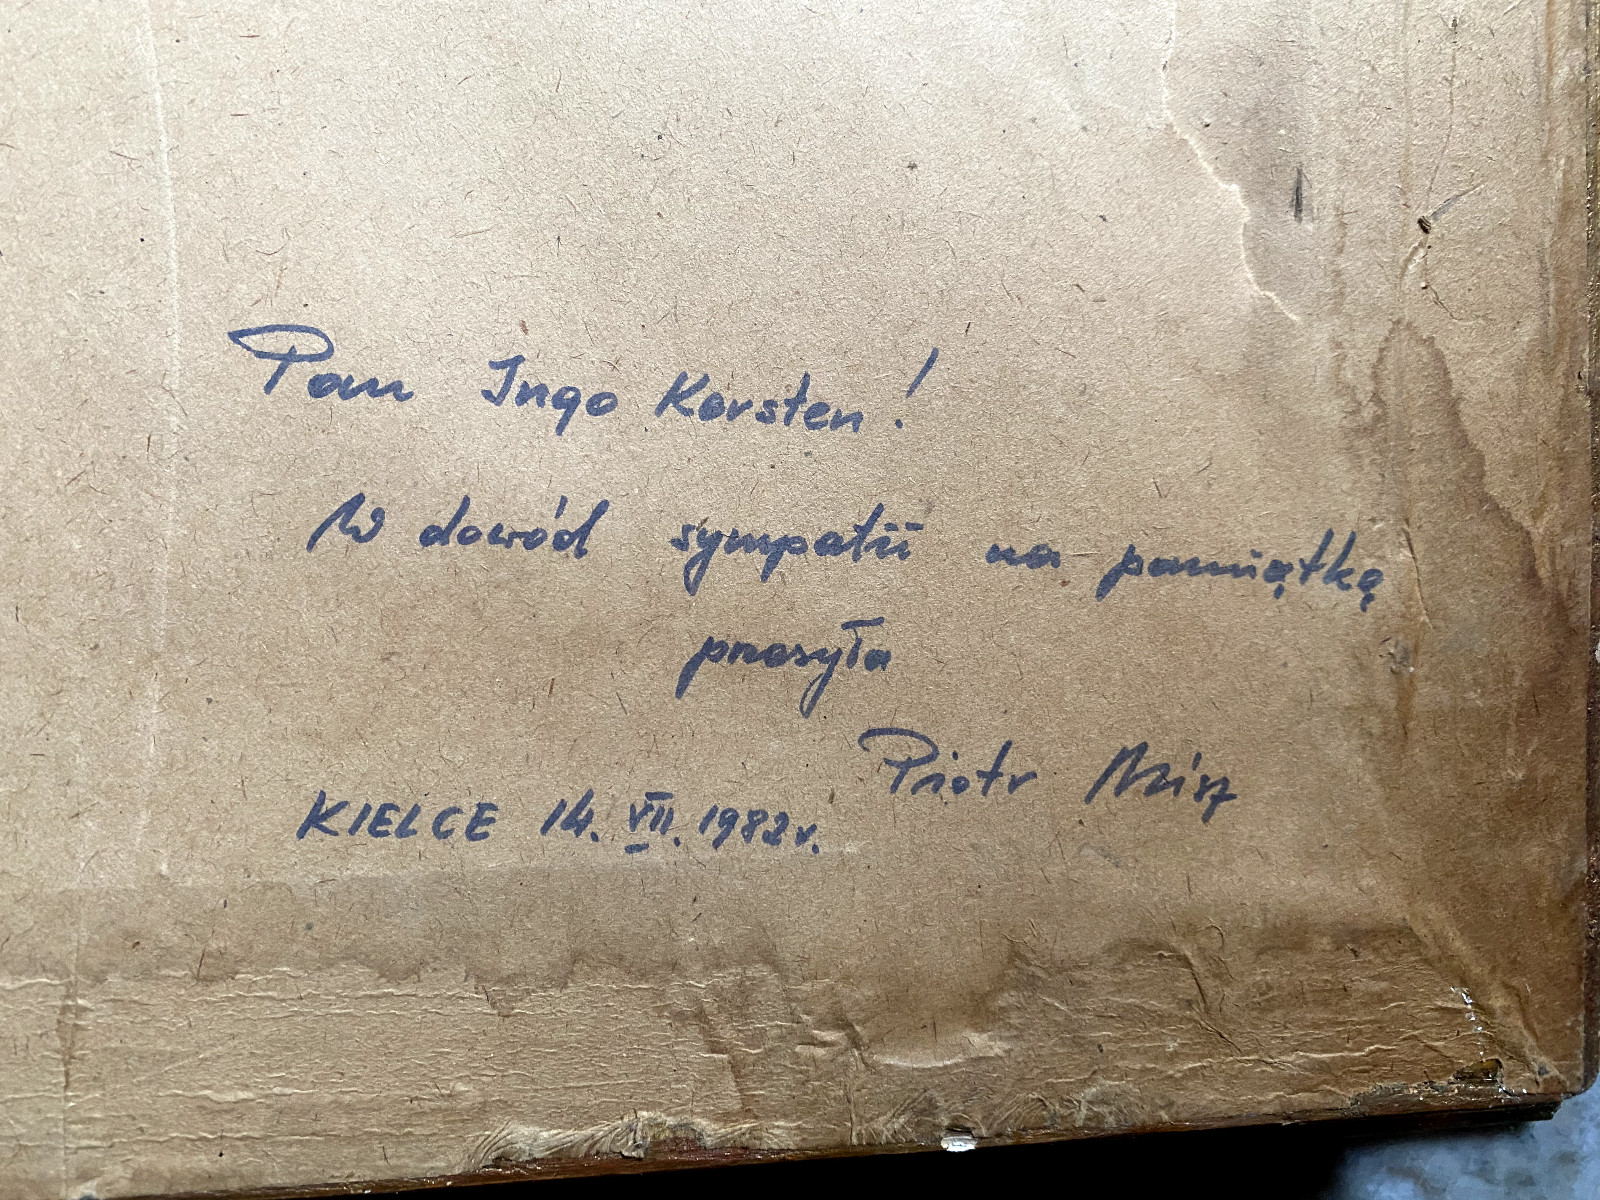 Pan Ingo Karsten!
W dowód sympatii na pamiątką
przesyła
Piotr
KIELCE 14. VII. 1982r.